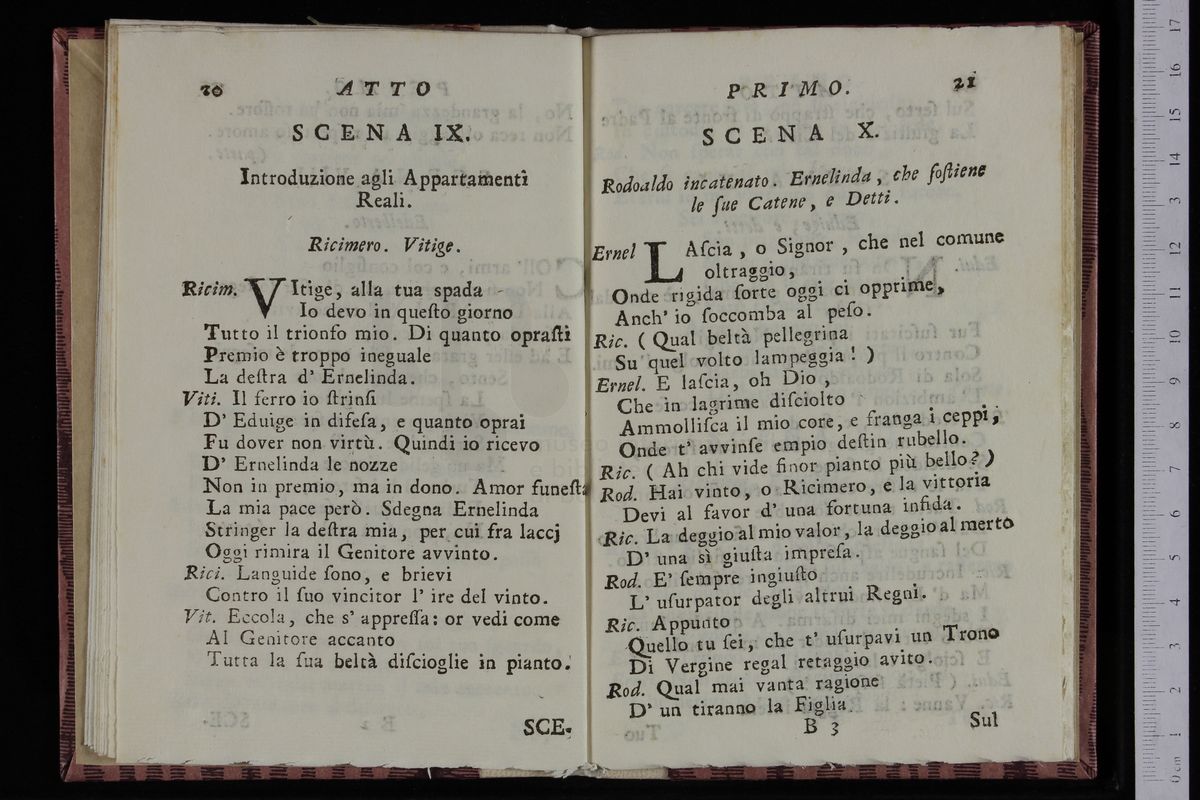 20 ATTO
SCENA IX.
Introduzione agli Appartamenti
Reali.
Ricimero. Vitige.
Ricim. VItige, alla tua spada
Io devo in queſto giorno
Tutto il trionfo mio. Di quanto opraſti
Premio è troppo ineguale
La deſtra d' Ernelinda.
Viti. Il ferro io ſtrinſi
D' Eduige in difeſa, e quanto oprai
Fu dover non virtù. Quindi io ricevo
D' Ernelinda le nozze
Non in premio, ma in dono. Amor funeſta
La mia pace però. Sdegna Ernelinda
Stringer la deſtra mia, per cui fra laccj
Oggi rimira il Genitore avvinto.
Rici. Languide ſono, e brievi
Contro il ſuo vincitor l' ire del vinto.
Vit. Eccola, che s' appreſſa: or vedi come
Al Genitore accanto
Tutta la ſua beltà diſcioglie in pianto.
SCE-
PRIMO. 21
SCENA X.
Rodoaldo incatenato. Ernelinda, che ſoſtiene
le ſue Catene, e Detti.
Ernel LAſcia, o Signor, che nel comune
oltraggio,
Onde rigida ſorte oggi ci opprime,
Anch' io ſoccomba al peſo.
Ric. ( Qual beltà pellegrina
Su quel volto lampeggia! )
Ernel. E laſcia, oh Dio,
Che in lagrime diſciolto
Ammolliſca il mio core, e franga i ceppi,
Onde t' avvinſe empio deſtin rubello.
Ric. ( Ah chi vide finor pianto più bello? )
Rod. Hai vinto, o Ricimero, e la vittoria
Devi al favor d' una fortuna infida.
Ric. La deggio al mio valor, la deggio al merto
D' una sì giuſta impreſa.
Rod. E' ſempre ingiuſto
L' uſurpator degli altrui Regni.
Ric. Appunto
Quello tu ſei, che t' uſurpavi un Trono
Di Vergine regal retaggio avito.
Rod. Qual mai vanta ragione
D' un tiranno la Figlia
B 3 Sul